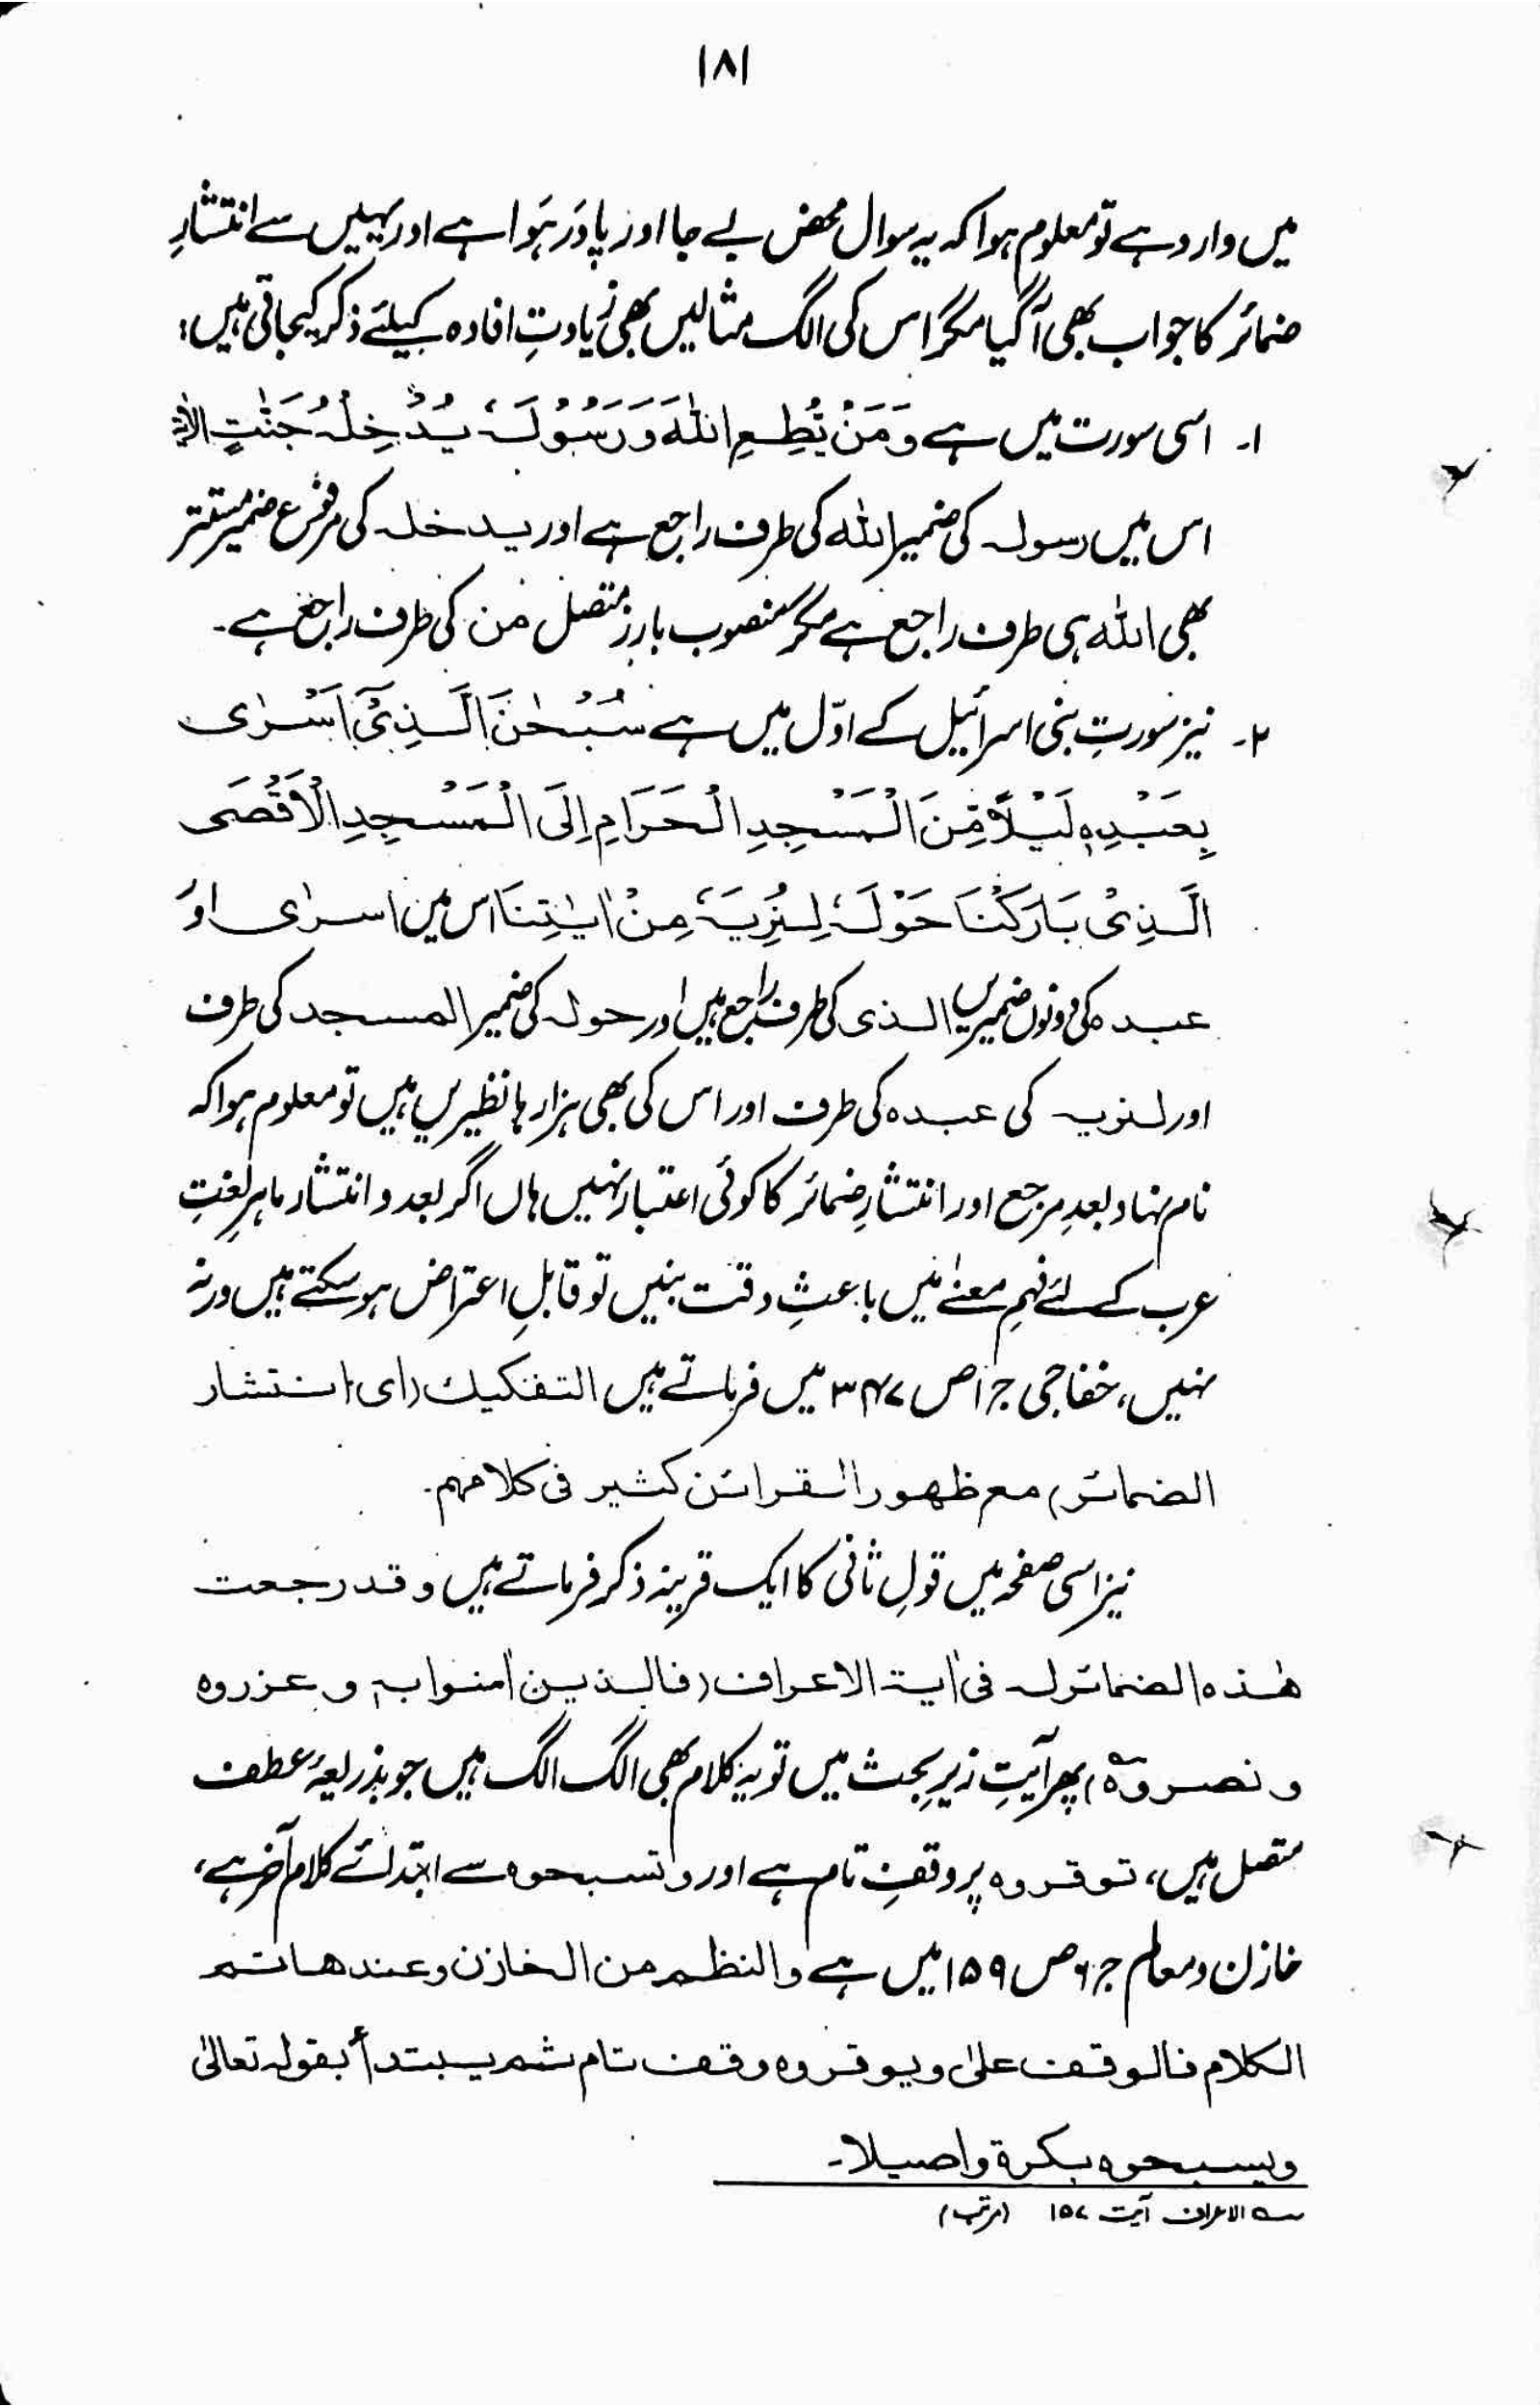 ۱۸۱
میں وارد ہے تو معلوم ہوا کہ یہ سوال محض بے جا اور پا دَر ہَوا ہے اور یہیں سے انتشارِ
ضمائر کا جواب بھی آگیا مگر اس کی الگ مثالیں بھی زیادتِ افادہ کیلئے ذکر کیجاتی ہیں:
۱۔ اسی سورت میں ہے وَمَنْ يُّطِعِ اللهَ وَرَسُوْلَهٗ يُدْخِلْهُ جَنّٰتٍ الآیۃ
اس میں رسولہ کی ضمیر اللہ کی طرف راجع ہے اور یدخلہ کی مرفوع ضمیر مستتر
بھی اللہ ہی طرف راجع ہے مگر منصوب بارز متصل من کی طرف راجع ہے۔
۲۔ نیز سورتِ بنی اسرائیل کے اوّل میں ہے سُبْحٰنَ الَّذِيْٓ اَسْرٰى
بِعَبْدِهٖ لَيْلًا مِّنَ الْمَسْجِدِ الْحَرَامِ اِلَى الْمَسْجِدِ الْاَقْصَى
الَّذِىْ بَارَكْنَا حَوْلَهٗ لِنُرِيَهٗ مِنْ اٰيٰتِنَا اس میں اسرٰی اور
عبدہ کی دونوں ضمیریں الذی کی طرف راجع ہیں اور حولہ کی ضمیر المسجد کی طرف
اور لنریہ کی عبدہ کی طرف اور اس کی بھی ہزارہا نظیریں ہیں تو معلوم ہوا کہ
نام نہاد بعدِ مرجع اور انتشارِ ضمائر کا کوئی اعتبار نہیں ہاں اگر بعد و انتشار ماہرِ لغتِ
عرب کے لئے فہمِ معنے میں باعثِ دقت بنیں تو قابلِ اعتراض ہو سکتے ہیں ورنہ
نہیں، خفاجی ج۱ ص ۳۴۷ میں فرماتے ہیں التفکیك (ای انتشار
الضمائر) مع ظهور القرائن کثیر فی کلامهم۔
نیز اسی صفحہ میں قولِ ثانی کا ایک قرینہ ذکر فرماتے ہیں وقد رجعت
هٰذہ الضمائر لہ فی اٰیۃ الاعراف (فالذین اٰمنوا بہ و عزروہ
و نصروہ) پھر آیتِ زیرِ بحث میں تو یہ کلام بھی الگ الگ ہیں جو بذریعۂ عطف
متصل ہیں، توقروہ پر وقفِ تام ہے اور وتسبحوہ سے ابتدائے کلامِ آخر ہے،
خازن و معالم ج۶ ص ۱۵۹ میں ہے والنظم من الخازن وعندها تم
الکلام فالوقف علی ویوقروہ وقف تام ثم یبتدأ بقولہ تعالیٰ
ویسبحوہ بکرۃ واصیلا۔
؎ الاعراف آیت ۱۵۷ (مرتب)